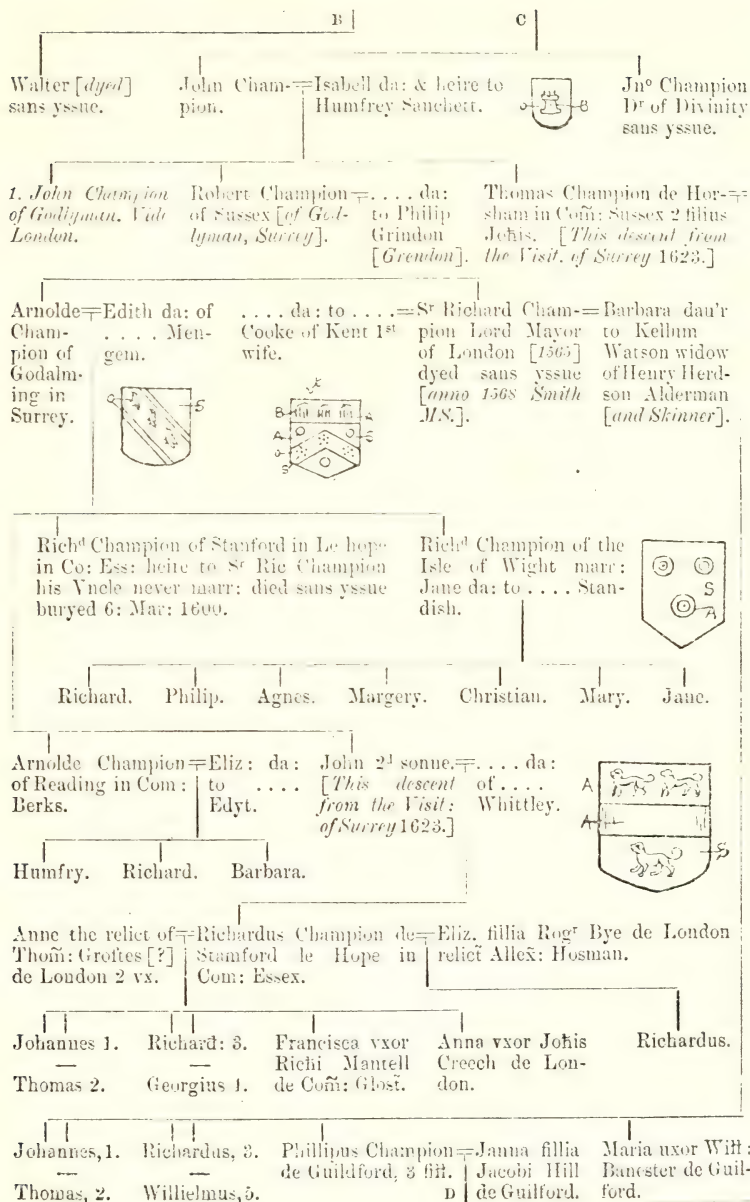 B C
Walter [dyed] sans yssue.
John Champion.=Isabell da: & heire to Humfrey Sanchett.
Jnº Champion Dr of Divinity sans yssue.
1. John Champion of Godlyman. Vide London.
Robert Champion of Sussex [of Godlyman, Surrey].=. . . . da: to Philip Grindon [Grendon].
Thomas Champion de Horsham in Com̃: Sussex 2 filius Joh̃is. [This descent from the Visit. of Surrey 1623.]
Arnolde Champion of Godalming in Surrey.=Edith da: of . . . . Mengem.
. . . . da: to . . . . Cooke of Kent 1st wife.=Sr Richard Champion Lord Mayor of London [1565] dyed sans yssue [anno 1568 Smith MS.].=Barbara dau'r to Kellum Watson widow of Henry Herdson Alderman [and Skinner].
Richd Champion of Stanford in Le hope in Co: Ess: heire to Sr Ric Champion his Vncle never marr: died sans yssue buryed 6: Mar: 1600.
Richd Champion of the Isle of Wight marr: Jane da: to . . . . Standish.
Richard. Philip. Agnes. Margery. Christian. Mary. Jane.
Arnolde Champion of Reading in Com: Berks.=Eliz: da: to . . . . Edyt.
John 2d sonne. [This descent from the Visit: of Surrey 1623.]=. . . . da: of . . . . Whittley.
Humfry. Richard. Barbara.
Anne the relict of Thom̃: Groftes [?] de London 2 vx.=Richardus Champion de Stamford le Hope in Com: Essex.=Eliz. fillia Rogr Bye de London relict̃ Allex̃: Hosman.
Johannes 1. — Thomas 2.
Richard: 3. — Georgius 1.
Francisca vxor Richi Mantell de Com̃: Glost̃.
Anna vxor Joh̃is Creech de London.
Richardus.
Johannes, 1. — Thomas, 2.
Richardus, 3. — Willielmus, 5.
Phillipus Champion de Guildford, 3 fil̃.=Janna fillia Jacobi Hill de Guilford.
D
Maria uxor Will̃: Banester de Guilford.